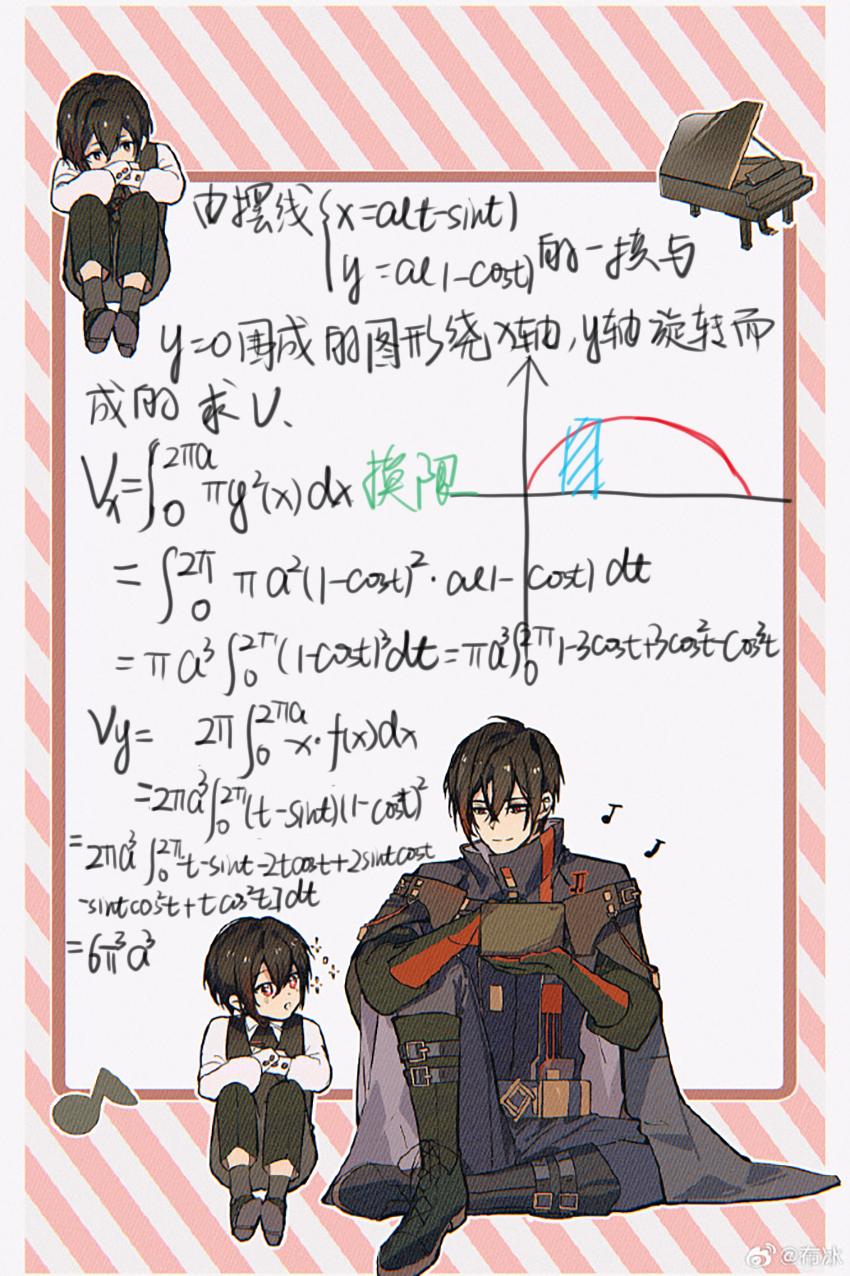 由摆线{x=a(t-sint)
y=a(1-cost)的一拱与
y=0围成的图形绕x轴,y轴旋转而
成的求V、
Vx=∫₀^{2πa} πy²(x)dx 换限
=∫₀^{2π} πa²(1-cost)²·a(1-cost)dt
=πa³∫₀^{2π}(1-cost)³dt=πa³∫₀^{2π}1-3cost+3cos²t-cos³t
Vy= 2π∫₀^{2πa}x·f(x)dx
=2πa³∫₀^{2π}(t-sint)(1-cost)²
=2πa³∫₀^{2π}t-sint-2tcost+2sintcost
-sintcos²t+tcos²t]dt
=6π³a³
@布冰